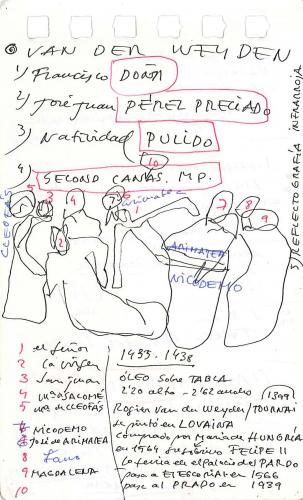 ⊙ VAN DER WEYDEN
1) Francisco DOÑA
2) José Juan PÉREZ PRECIADO
3) Natividad PULIDO
10
4) SECONSO CANAS. M P.
5) REFLECTOGRAFÍA INFRARROJA
CLEOFÁS
5 3 4 7 6
Arimatea
1
2
7 8 9
ARIMATEA
NICODEMO
1 el Señor
2 La virgen
3 San Juan
4 Mª SALOMÉ
5 Mª de CLEOFÁS
6 NICODEMO
7 José de ARIMATEA
8
9 MAGDALENA
10
1435-1438
ÓLEO sobre TABLA
2'20 alto - 2'62 ancho
1399
Rogier Van der Weyden/TOURNAI
se pintó en LOVAINA
comprado por María de HUNGRÍA
en 1564 su sobrino FELIPE II
lo tenía en el palacio del PARDO
pasa a El ESCORIAL en 1566
pasa al PRADO en 1939